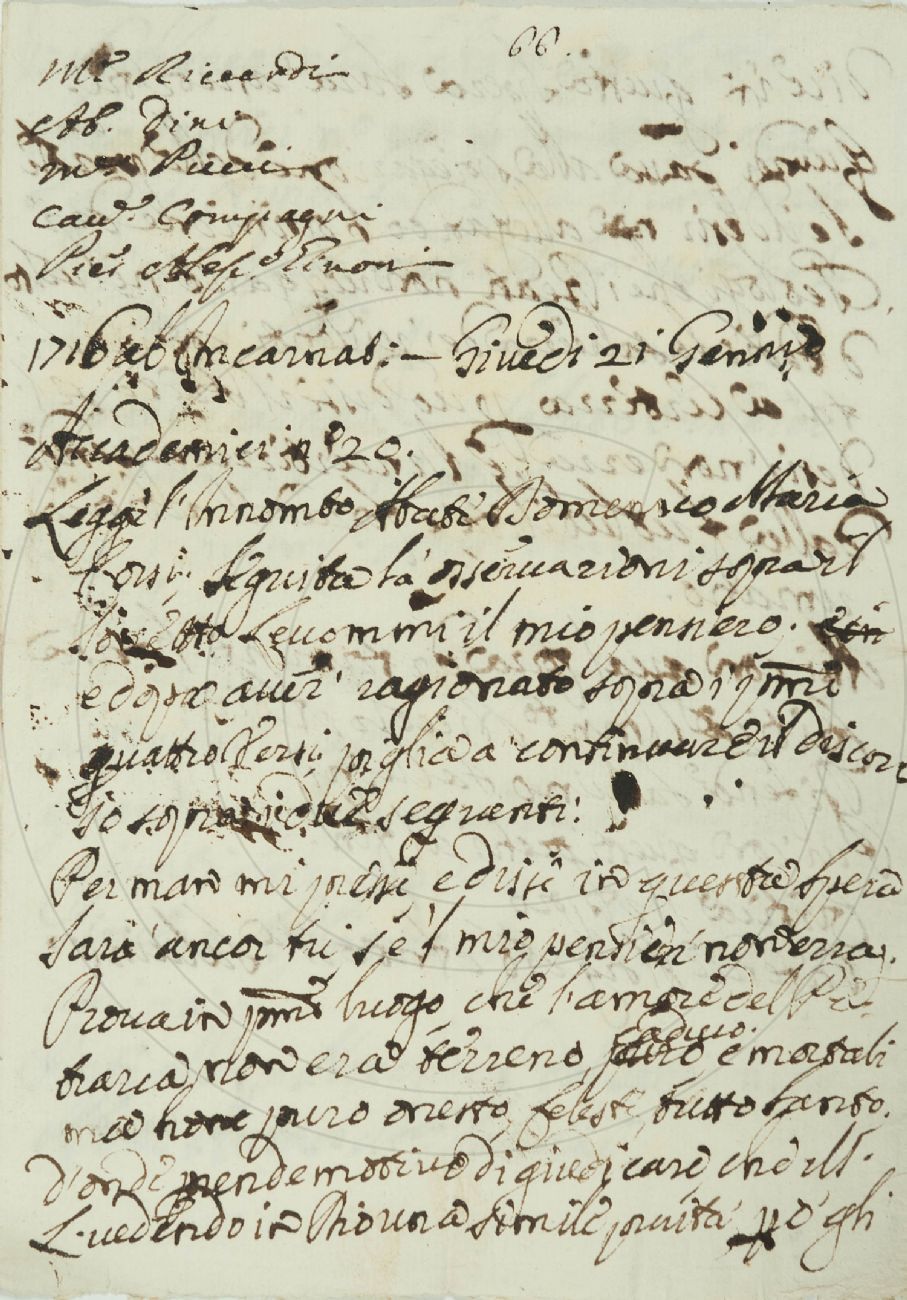 66.
M.e Riccardi
Ab. Dini
M.e Pucci
Cav.e Compagni
Pier
1716 ab Incarnat: – Giuvedi 21 Gennio
Accademici n.o 20.
Legge l'Innom.to Abate Domenico Maria
Corsi, seguita la osservazioni sopra il
sonetto Levommi il mio pensiero;
e dopo aver ragionato sopra i pmi
quattro versi, piglia a continuare il discor
so sopra i due seguenti:
Per man mi prese, e disse in questa spera
sarai ancor tu se 'l mio pensier non erra.
Prova in pmo luogo che l'amore del Pe
trarca non era terreno, caduco e mortale
ma puro onesto, celeste, tutto santo.
d'onde prende motivo di giudicare che M.
L. vedendo in una simile purità, gli